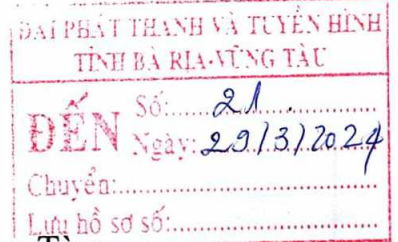 ĐÀI PHÁT THANH VÀ TUYỀN HÌNH
TỈNH BÀ RỊA-VŨNG TÀU
ĐẾN
Số: 21
Ngày: 29/3/2024
Chuyển:
Lưu hồ sơ số: